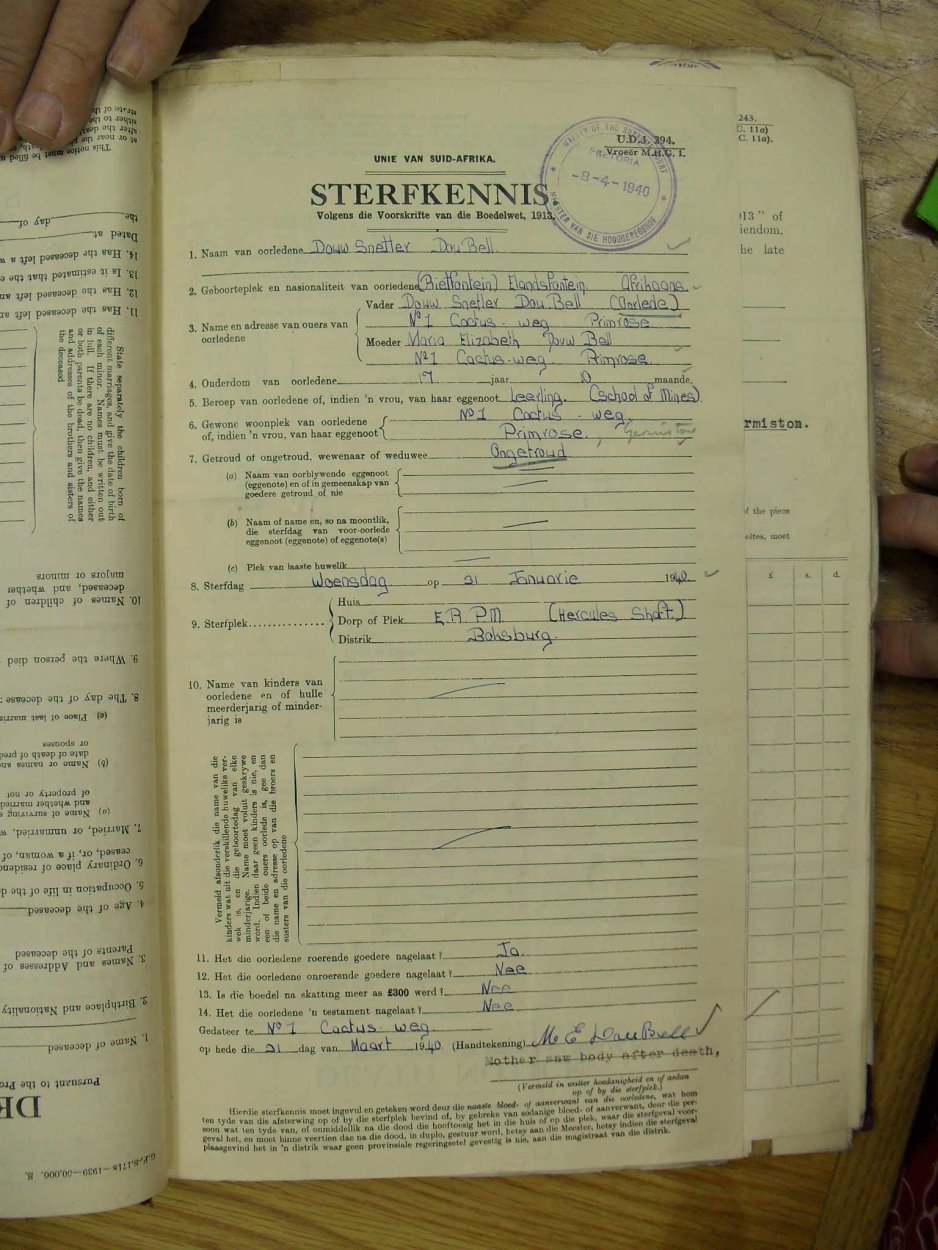 U.D.J. 294.
Vroeër M.H.G. 1.
PRETORIA
-8-4-1940
UNIE VAN SUID-AFRIKA.
STERFKENNIS
Volgens die Voorskrifte van die Boedelwet, 1913.
1. Naam van oorledene Douw Snetler Dou Bell
2. Geboorteplek en nasionaliteit van oorledene (Rietfontein) Elandsfontein. Afrikaans
3. Name en adresse van ouers van oorledene
Vader Douw Snetler Dou Bell (Oorlede)
No 1 Cactus - weg Primrose
Moeder Maria Elizabeth Douw Bell
No 1 Cactus-weg Primrose
4. Ouderdom van oorledene 17 jaar 10 maande.
5. Beroep van oorledene of, indien 'n vrou, van haar eggenoot Leerling. (School of Mines)
6. Gewone woonplek van oorledene of, indien 'n vrou, van haar eggenoot
No 1 Cactus - weg.
Primrose, Germiston
7. Getroud of ongetroud, wewenaar of weduwee Ongetroud
(a) Naam van oorblywende eggenoot
(eggenote) en of in gemeenskap van
goedere getroud of nie
(b) Naam of name en, so na moontlik,
die sterfdag van voor-oorlede
eggenoot (eggenote) of eggenote(s)
(c) Plek van laaste huwelik
8. Sterfdag Woensdag op 31 Januarie 1940
9. Sterfplek
Huis
Dorp of Plek E.R.P.M (Hercules Shaft)
Distrik Boksburg.
10. Name van kinders van
oorledene en of hulle
meerderjarig of minder-
jarig is
Vermeld afsonderlik die name van die
kinders wat uit die verskillende huwelike ver-
wek is, en die geboortedag van elke
minderjarige. Name moet voluit geskrywe
word. Indien daar geen kinders is nie, en
een of beide ouers oorlede is, gee dan
die name en adresse op van die broers en
susters van die oorledene
11. Het die oorledene roerende goedere nagelaat? Ja.
12. Het die oorledene onroerende goedere nagelaat? Nee
13. Is die boedel na skatting meer as £300 werd? Nee
14. Het die oorledene 'n testament nagelaat? Nee
Gedateer te No 1 Cactus - weg.
op hede die 21 dag van Maart 1940. (Handtekening) M E Dou Bell
Mother saw body after death,
(Vermeld in watter hoedanigheid en of aldan
op of by die sterfplek.)
Hierdie sterfkennis moet ingevul en geteken word deur die naaste bloed- of aanverwant van die oorledene, wat hom
ten tyde van die afsterwing op of by die sterfplek bevind of, by gebreke van sodanige bloed- of aanverwant, deur die per-
soon wat ten tyde van, of onmiddellik na die dood die hooftoesig het in die huis of op die plek, waar die sterfgeval voor-
geval het, en moet binne veertien dae na die dood, in duplo, gestuur word, hetsy aan die Meester, hetsy indien die sterfgeval
plaasgevind het in 'n distrik waar geen provinsiale regeringsetel gevestig is nie, aan die magistraat van die distrik.
G.P.-S.1718-1939-50,000. S.
Pursuant to the Pro
1. Name of deceased
2. Birthplace and Nationality
3. Names and Addresses of
Parents of the deceased
4. Age of the deceased
5. Occupation in life of the d
6. Ordinary place of residenc
ceased, or, if a woman, of
7. Married, or unmarried, w
(a) Name of surviving s
and whether married
of property or not
(b) Name or names an
date of death of pred
or spouses
(c) Place of last marria
8. The day of the decease
9. Where the person died
10. Names of children of
deceased, and whether
majors or minors
State separately the children born of
different marriages, and give the date of birth
of each minor. Names must be written out
in full. If there are no children, and either
or both parents be dead, then give the names
and addresses of the brothers and sisters of
the deceased
11. Has the deceased left an
12. Has the deceased left an
13. Is it estimated that the e
14. Has the deceased left a w
Dated at
the day of
This notice must be filled u
243.
C. 11a)
C. 11a).
13" of
iendom.
he late
rmiston.
f the piece
eltes, moet
£ s. d.